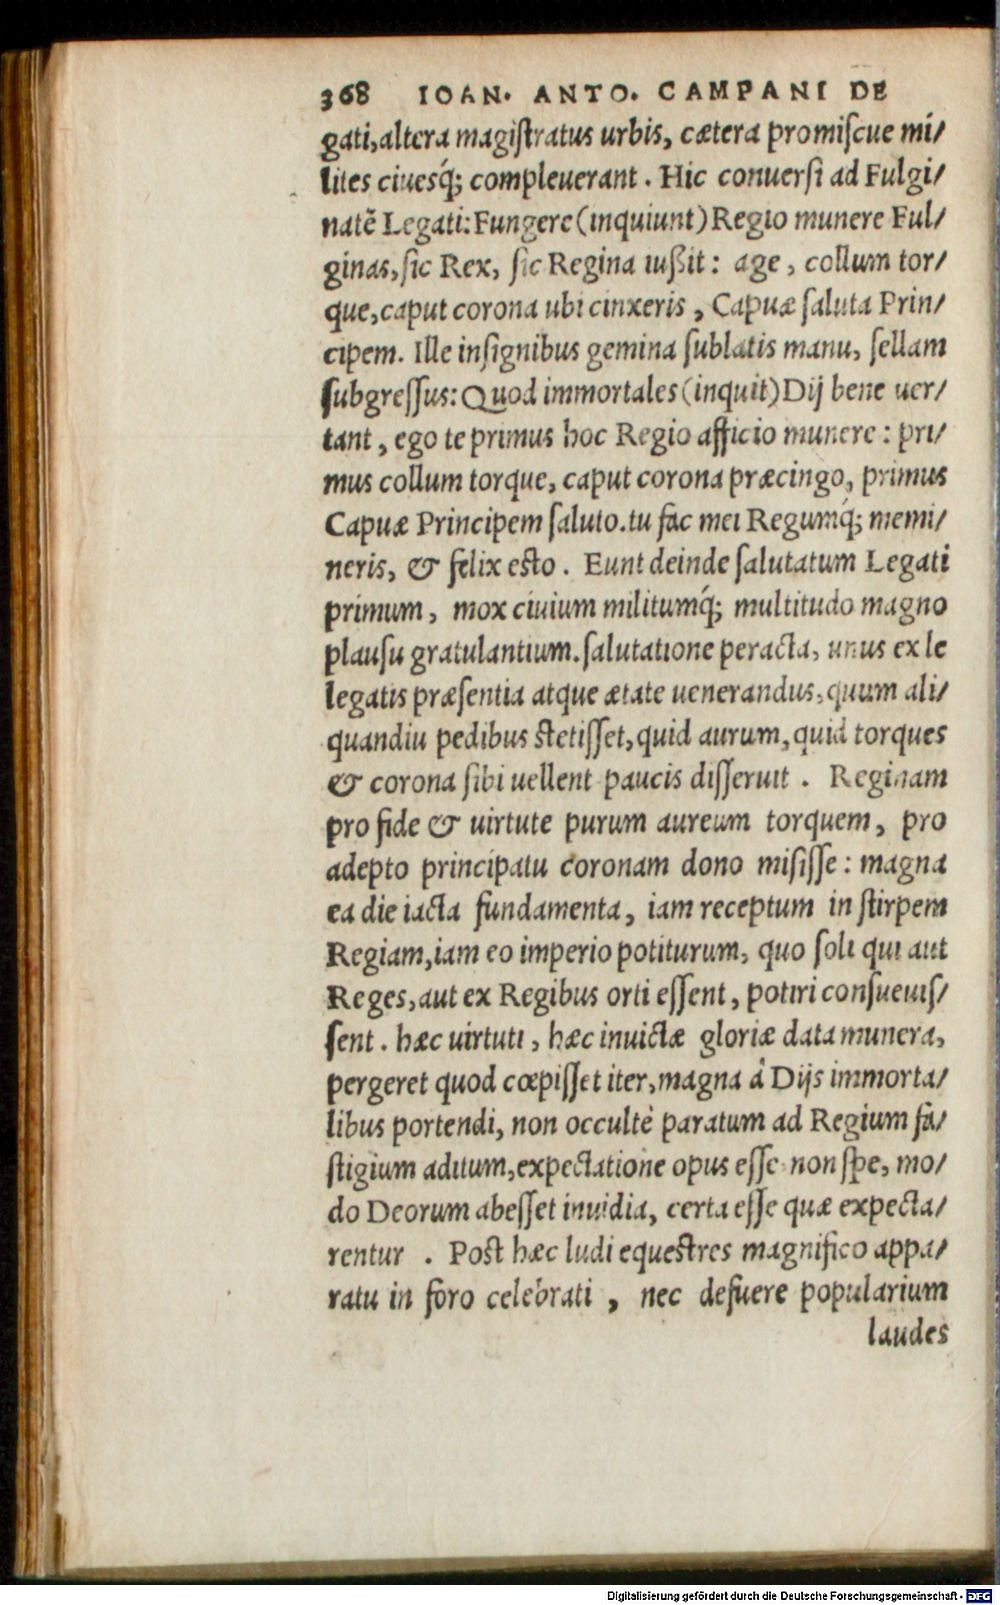 368 IOAN. ANTO. CAMPANI DE
gati, altera magiſtratus urbis, cætera promiſcue mi/
lites ciuesq́; compleuerant. Hic conuerſi ad Fulgi/
natẽ Legati: Fungere (inquiunt) Regio munere Ful/
ginas, ſic Rex, ſic Regina iußit: age, collum tor/
que, caput corona ubi cinxeris, Capuæ ſaluta Prin/
cipem. Ille inſignibus gemina ſublatis manu, ſellam
ſubgreſſus: Quod immortales (inquit) Dij bene uer/
tant, ego te primus hoc Regio afficio munere: pri/
mus collum torque, caput corona præcingo, primus
Capuæ Principem ſaluto. tu fac mei Regumq́; memi/
neris, & felix esto. Eunt deinde ſalutatum Legati
primum, mox ciuium militumq́; multitudo magno
plauſu gratulantium. ſalutatione peracta, unus ex le
legatis præſentia atque ætate uenerandus, quum ali/
quandiu pedibus stetiſſet, quid aurum, quid torques
& corona ſibi uellent paucis diſſeruit. Reginam
pro fide & uirtute purum aureum torquem, pro
adepto principatu coronam dono miſiſſe: magna
ea die iacta fundamenta, iam receptum in ſtirpem
Regiam, iam eo imperio potiturum, quo ſoli qui aut
Reges, aut ex Regibus orti eſſent, potiri conſueuiſ/
ſent. hæc uirtuti, hæc inuictæ gloriæ data munera,
pergeret quod cœpiſſet iter, magna à Dijs immorta/
libus portendi, non occultè paratum ad Regium fa/
ſtigium aditum, expectatione opus eſſe non ſpe, mo/
do Deorum abeſſet inuidia, certa eſſe quæ expecta/
rentur. Post hæc ludi equestres magnifico appa/
ratu in foro celebrati, nec defuere popularium
laudes
Digitalisierung gefördert durch die Deutsche Forschungsgemeinschaft - DFG